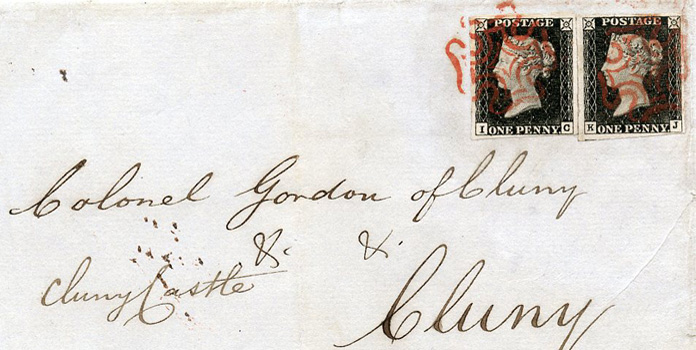 POSTAGE POSTAGE
I ONE PENNY C K ONE PENNY J
Colonel Gordon of Cluny
&. &.
Cluny Castle
Cluny